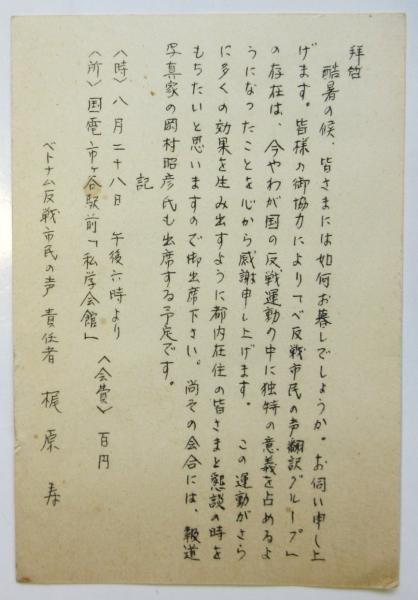 拝啓
酷暑の候、皆さまには如何お暮しでしょうか。お伺い申し上
げます。皆様の御協力によりて「ベ反戦市民の声翻訳グループ」
の存在は、今やわが国の反戦運動の中に独特の意義を占めるよ
うになったことを心から感謝申し上げます。 この運動がさら
に多くの効果を生み出すように都内在住の皆さまと懇談の時を
もちたいと思いますので御出席下さい。尚その会合には、報道
写真家の岡村昭彦氏も出席する予定です。
記
〈時〉八月二十八日 午後六時より
〈所〉国電市ヶ谷駅前「私学会館」 〈会費〉百円
ベトナム反戦市民の声 責任者 梶原 寿